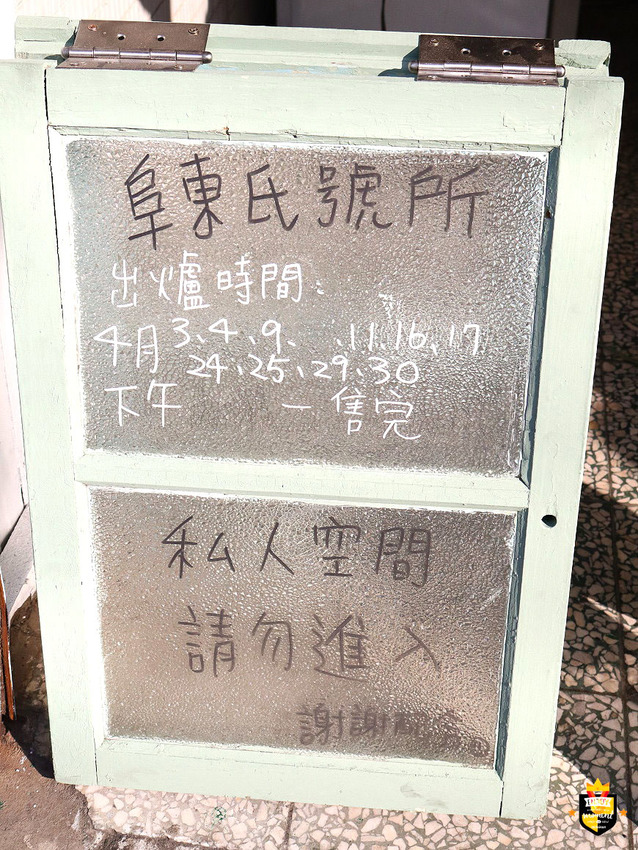 阜東氏號所
出爐時間：
4月3、4、9、 、11、16、17
24、25、29、30
下午 — 售完
私人空間
請勿進入
謝謝配合